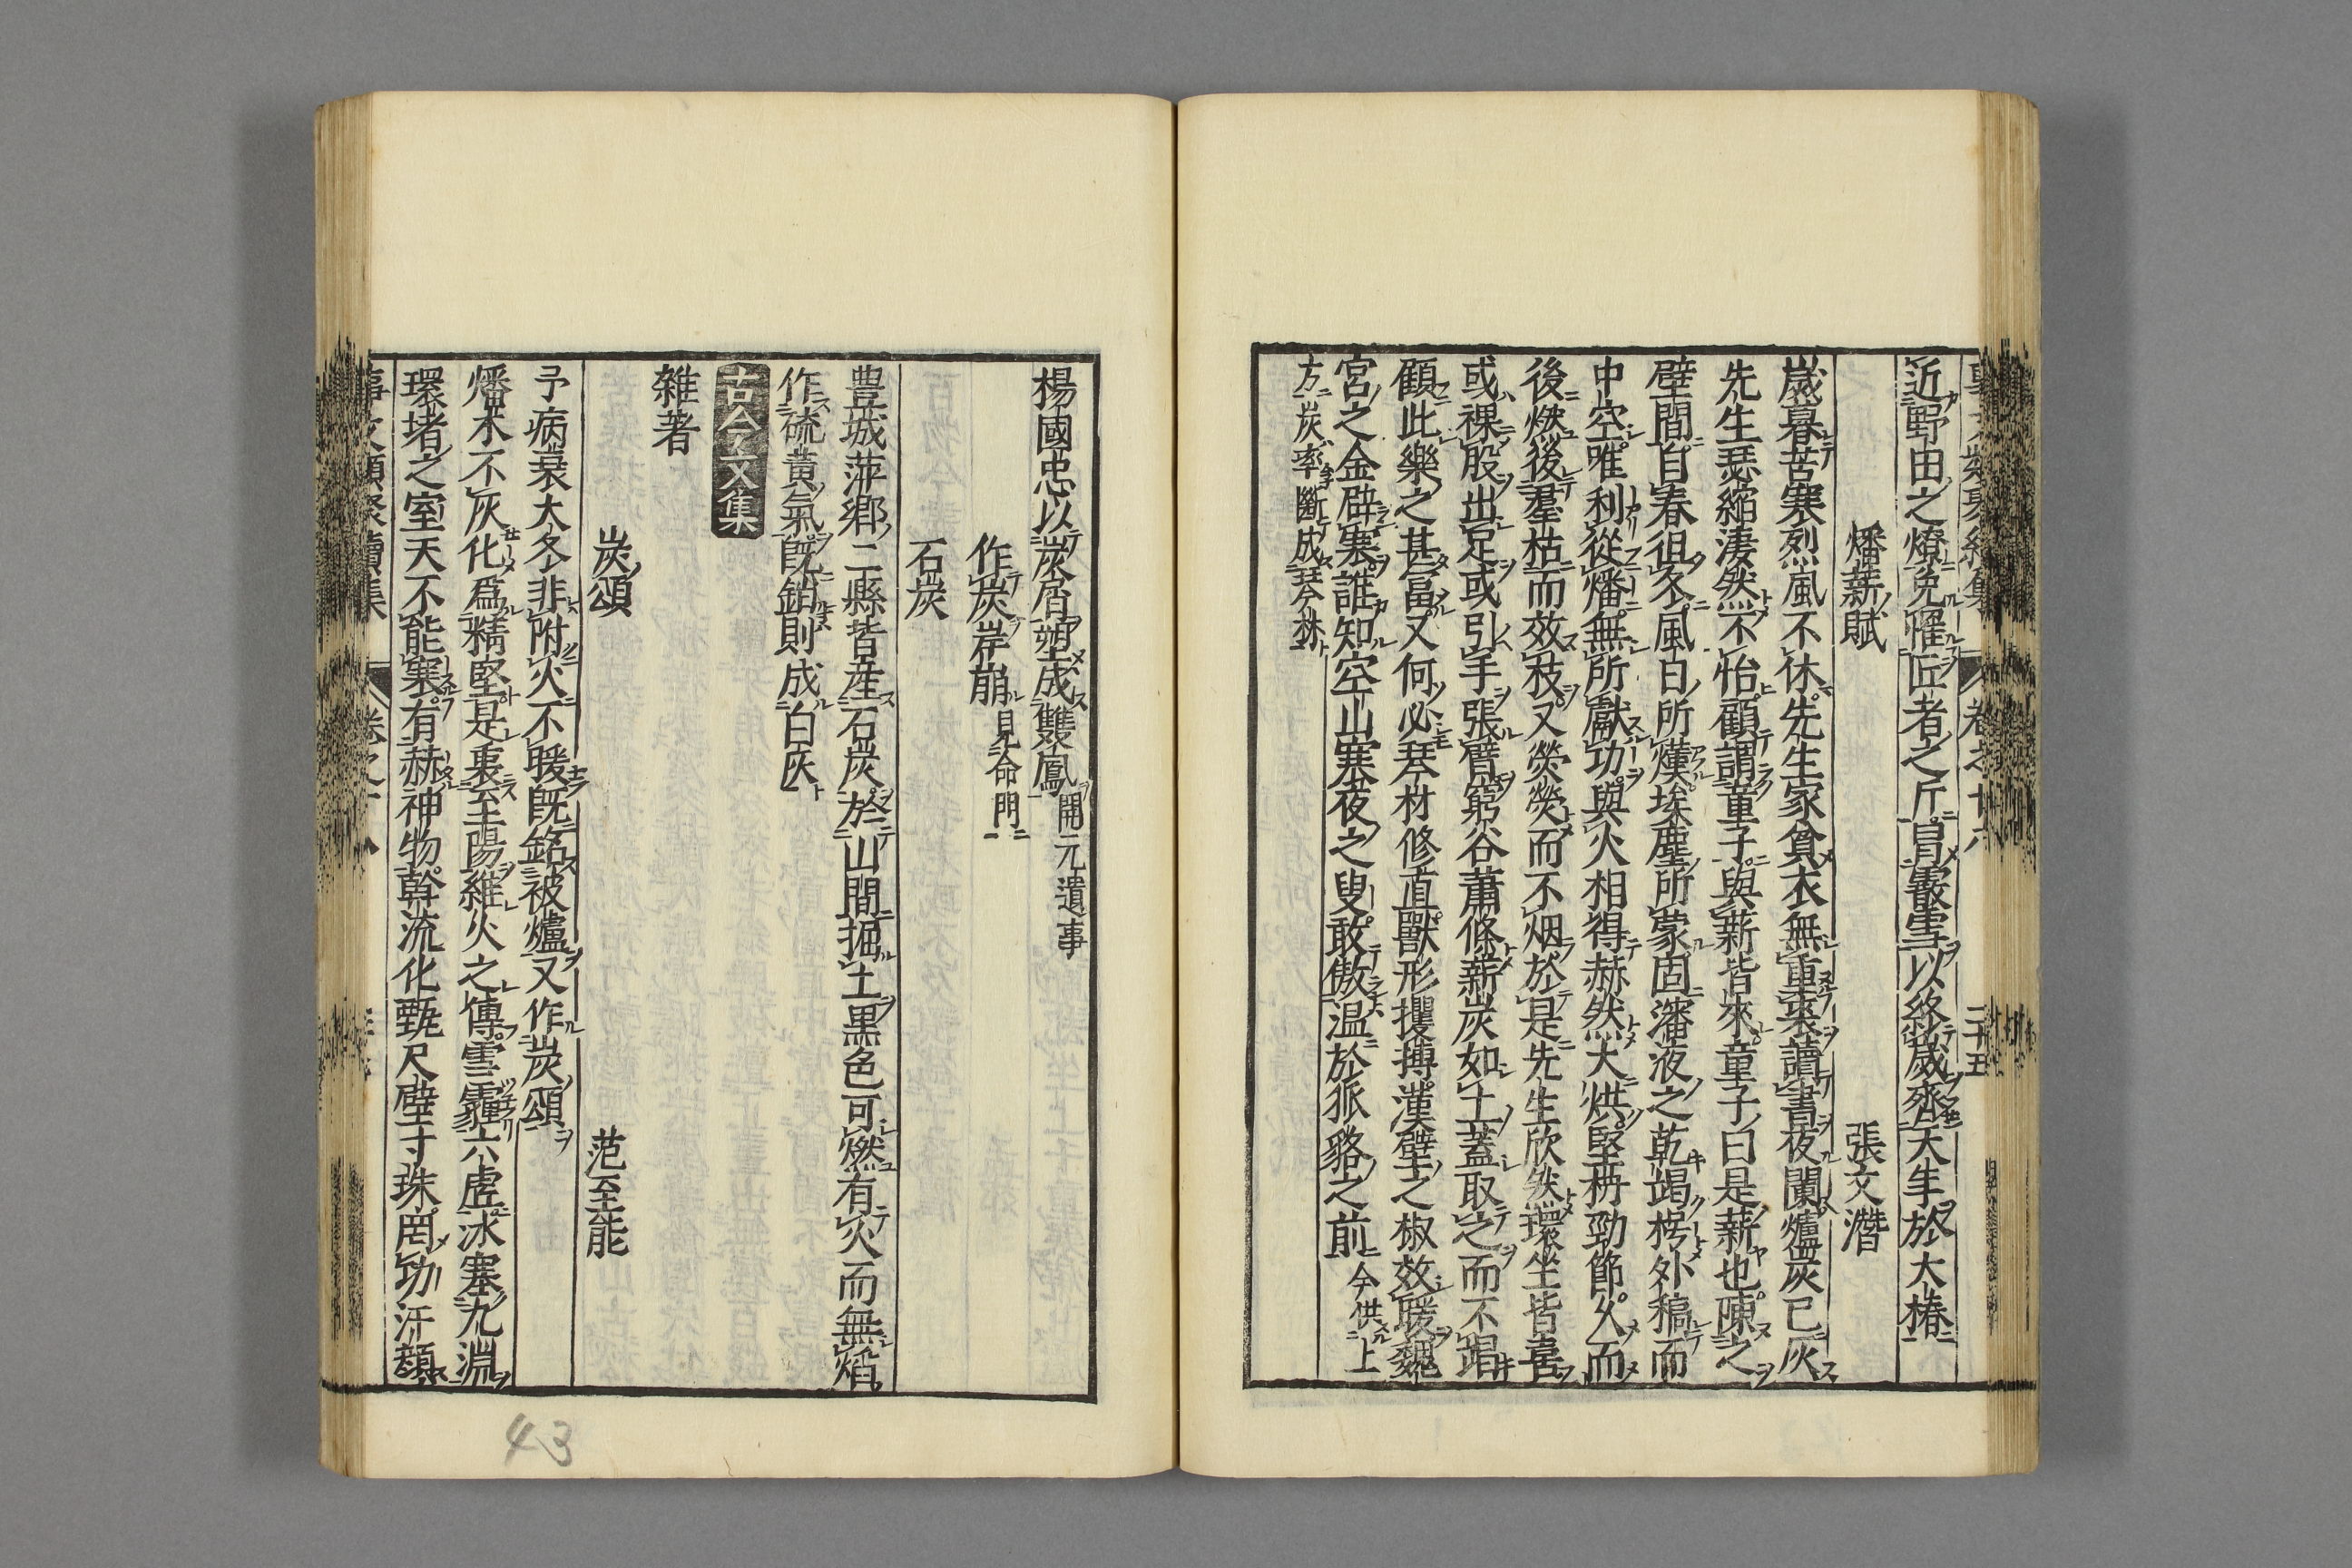 近野由之燎免罹匠者之斤冒嚴雪以終歲齊天年於大椿
燔薪賦　張文潛
歲暮苦寒烈風不休先生家貧衣無重裘讀書夜闌爐炭已灰
先生瑟縮淒然不怡顧謂童子與薪皆來童子曰是薪也陳之
壁間自春徂冬風日所熯埃塵所蒙固瀋液之乾竭枵外稿而
中空唯利從燔無所獻功與火相得赫然大烘堅枿勁節久而
後燃後羣枯而效枝又熒熒而不烟於是先生欣然環坐皆喜
或裸股出足或引手張臂窮谷蕭條薪炭如土蓋取之而不竭
顧此樂之甚富又何必琴材修直獸形攫搏漢壁之椒效暖魏
宮之金辟寒誰知空山寒夜之叟敢傲温於狐貉之前　今供上
方炭率斷成琴樣
楊國忠以炭屑塑成雙鳳　開元遺事
作炭岸崩　見命門
石炭
豊城萍鄉二縣皆産石炭於山間掘土黒色可燃有火而無焰
作硫黄氣既銷則成白灰
古今文集
雜著
炭頌　范至能
予病衰大冬非附火不暖既銘被爐又作炭頌
燔木不灰化爲精堅是裏至陽維火之傳雪霾六虚冰塞九淵
環堵之室天不能寒有赫神物幹流化甄尺璧寸珠罔功汗顔
43